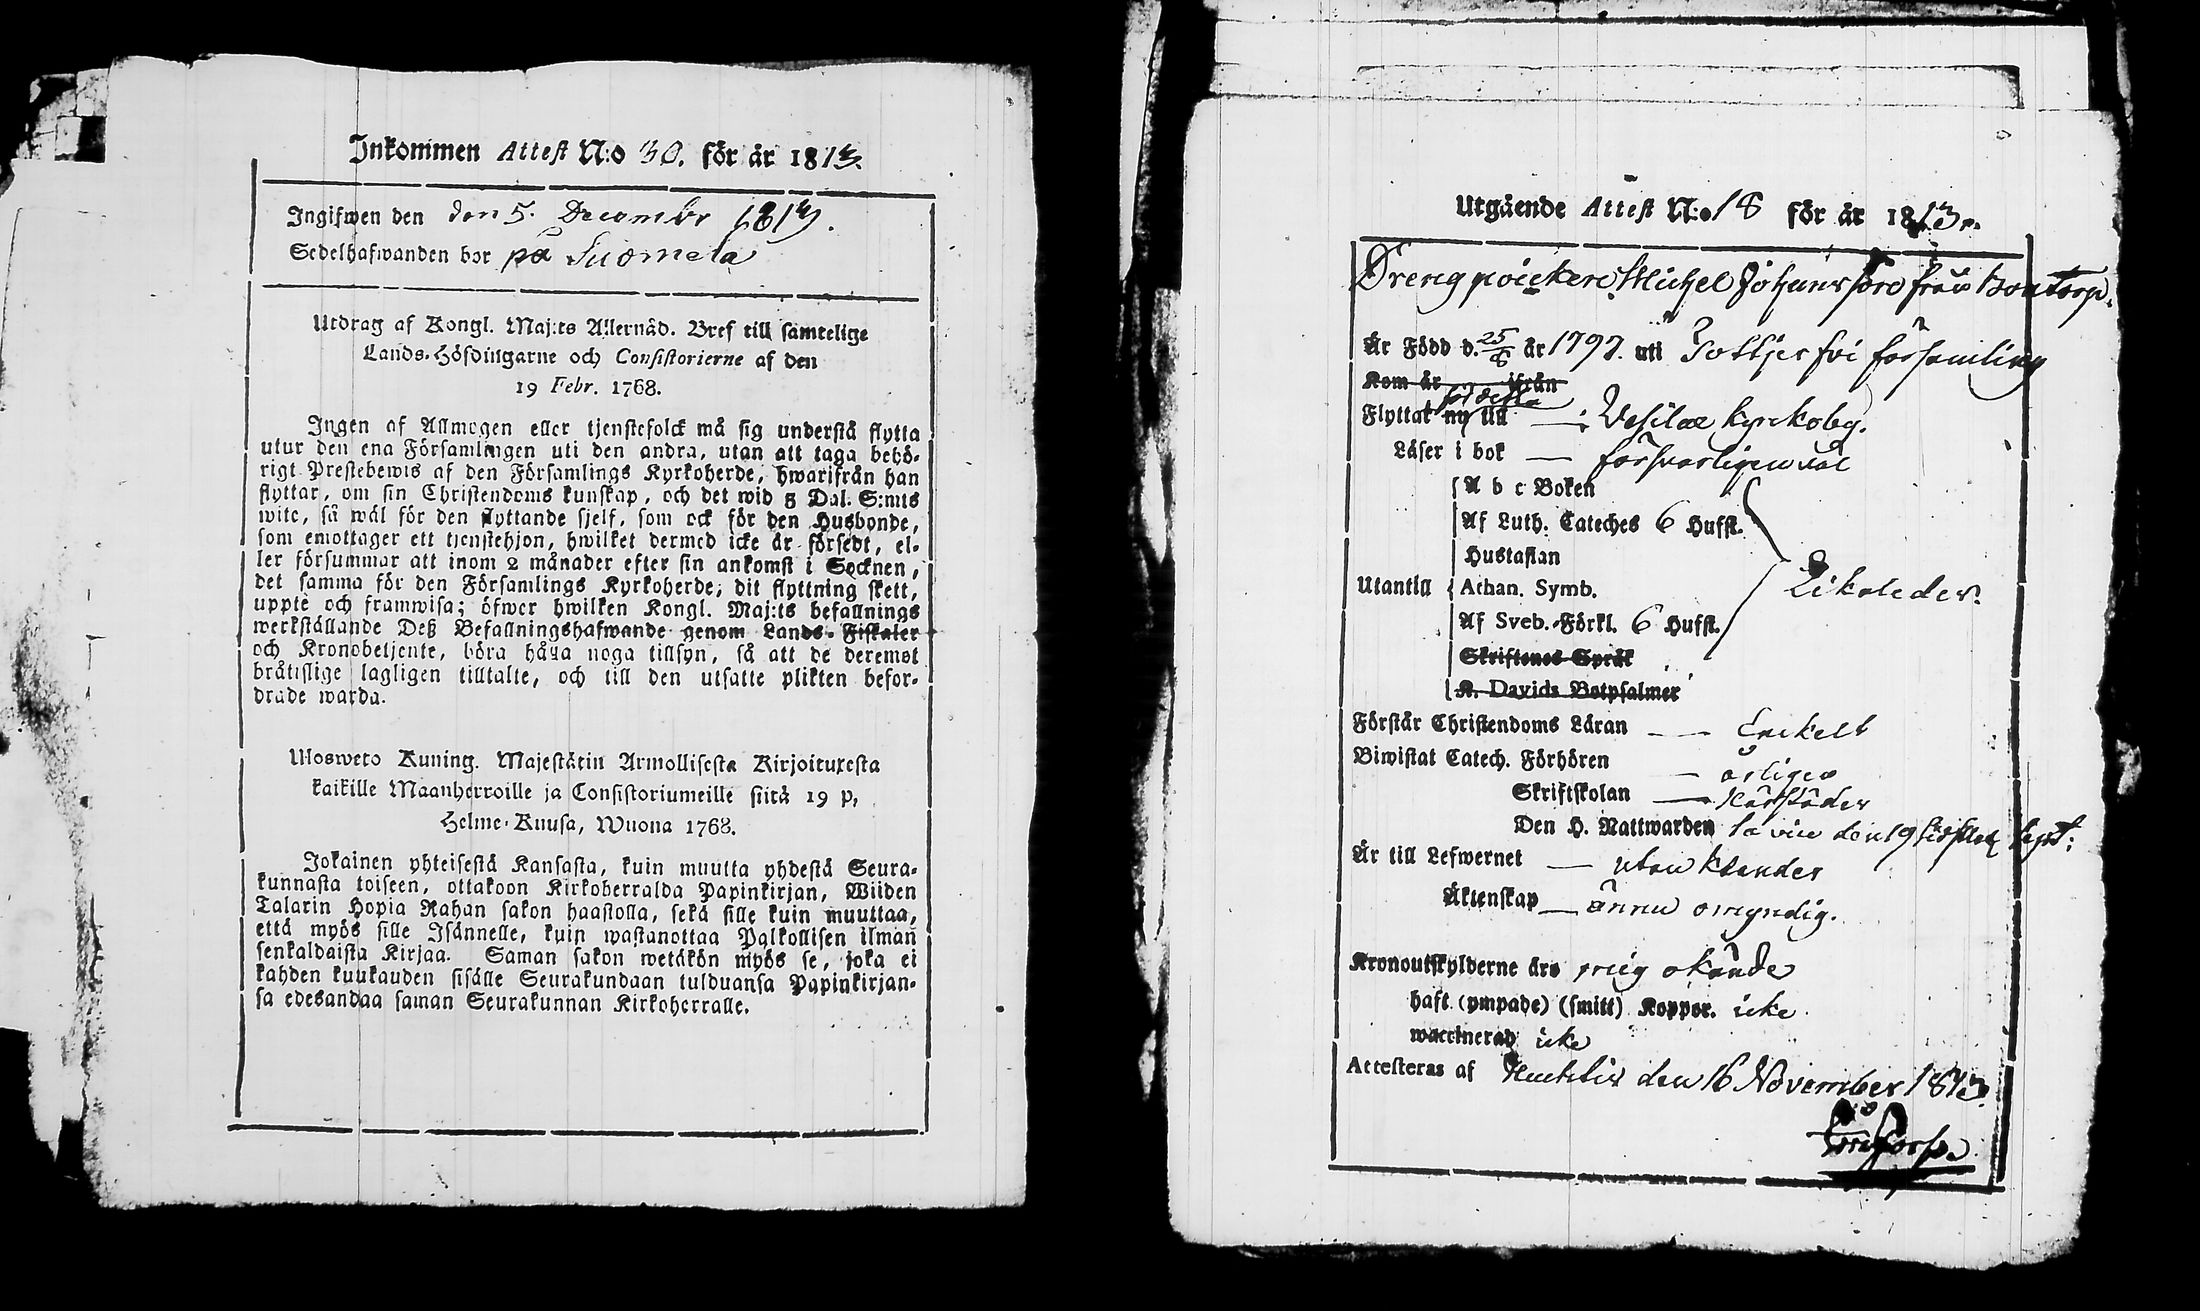 Inkommen Attest N:o 30. för år 1813.
Ingifwen den den 5. Decembr 1813.
Sedelhafwanden bor på Suomela
Utdrag af Kongl. Maj:ts Allernåd. Bref till samtelige
Lands-Höfdingarne och Consistorierne af den
19 Febr. 1768.
Ingen af Allmogen eller tjenstefolck må sig understå flytta
utur den ena Församlingen uti den andra, utan att taga behö-
rigt Prestebewis af den Församlings Kyrkoherde, hwarifrån han
flyttar, om sin Christendoms kunskap, och det wid 5 Dal. S:mts
wite, så wäl för den flyttande sjelf, som ock för den Husbonde,
som emottager ett tjenstehjon, hwilket dermed icke är försedt, el-
ler försummar att inom 2 månader efter sin ankomst i Socknen,
det samma för den Församlings Kyrkoherde, dit flyttning skett,
uppte och framwisa; öfwer hwilken Kongl. Maj:ts befallnings
werkställande Deß Befallningshafwande genom Lands-Fiskaler
och Kronobetjente, böra hålla noga tillsyn, så att de deremot
bråtislige lagligen tilltalte, och till den utsatte plikten befor-
drade warda.
Ulosweto Kuning. Majestätin Armollisesta Kirjoituxesta
kaikille Maanherroille ja Consistoriumeille siitä 19 p,
Helme-Kuusa, Wuona 1768.
Jokainen yhteisestä Kansasta, kuin muutta yhdestä Seura-
kunnasta toiseen, ottakoon Kirkoherralda Papinkirjan, Wiiden
Talarin Hopia Rahan sakon haastolla, sekä sille kuin muuttaa,
että myös sille Isännelle, kuin wastanottaa Palkollisen ilman
senkaldaista Kirjaa. Saman sakon wetäkön myös se, joka ei
kahden kuukauden sisälle Seurakundaan tulduansa Papinkirjan-
sa edesandaa saman Seurakunnan Kirkoherralle.
Utgående Attest N:o 18 för år 1813.
Drengpoicken Michel Johansson från Bontorp.
Är Född d. 25/8 år 1797. uti Pottjerfvi församling
Kom år ifrån
Flyttat ny till —: Vesilax kyrkoby.
Läser i bok — försvarligen väl
A b c Boken
Af Luth. Cateches 6 Hufst.
Hustaflan
Utantill Athan. Symb. Likaledes.
Af Sveb.-Förkl. 6 Hufst.
Skriftenes Språk
K. Davids Botpsalmer
Förstår Christendoms Läran — Enkelt
Biwistat Catech. Förhören — årligen
Skriftskolan —
Den H. Nattwarden den 19 Sept:
Är till Lefwernet — utan klander
Äktenskap — ännu omyndig.
Kronoutskylderne äro mig okände
haft (ympade) (smitt) Koppor. icke
waccinerad icke
Attesteras af Huittis den 16 November 1813.